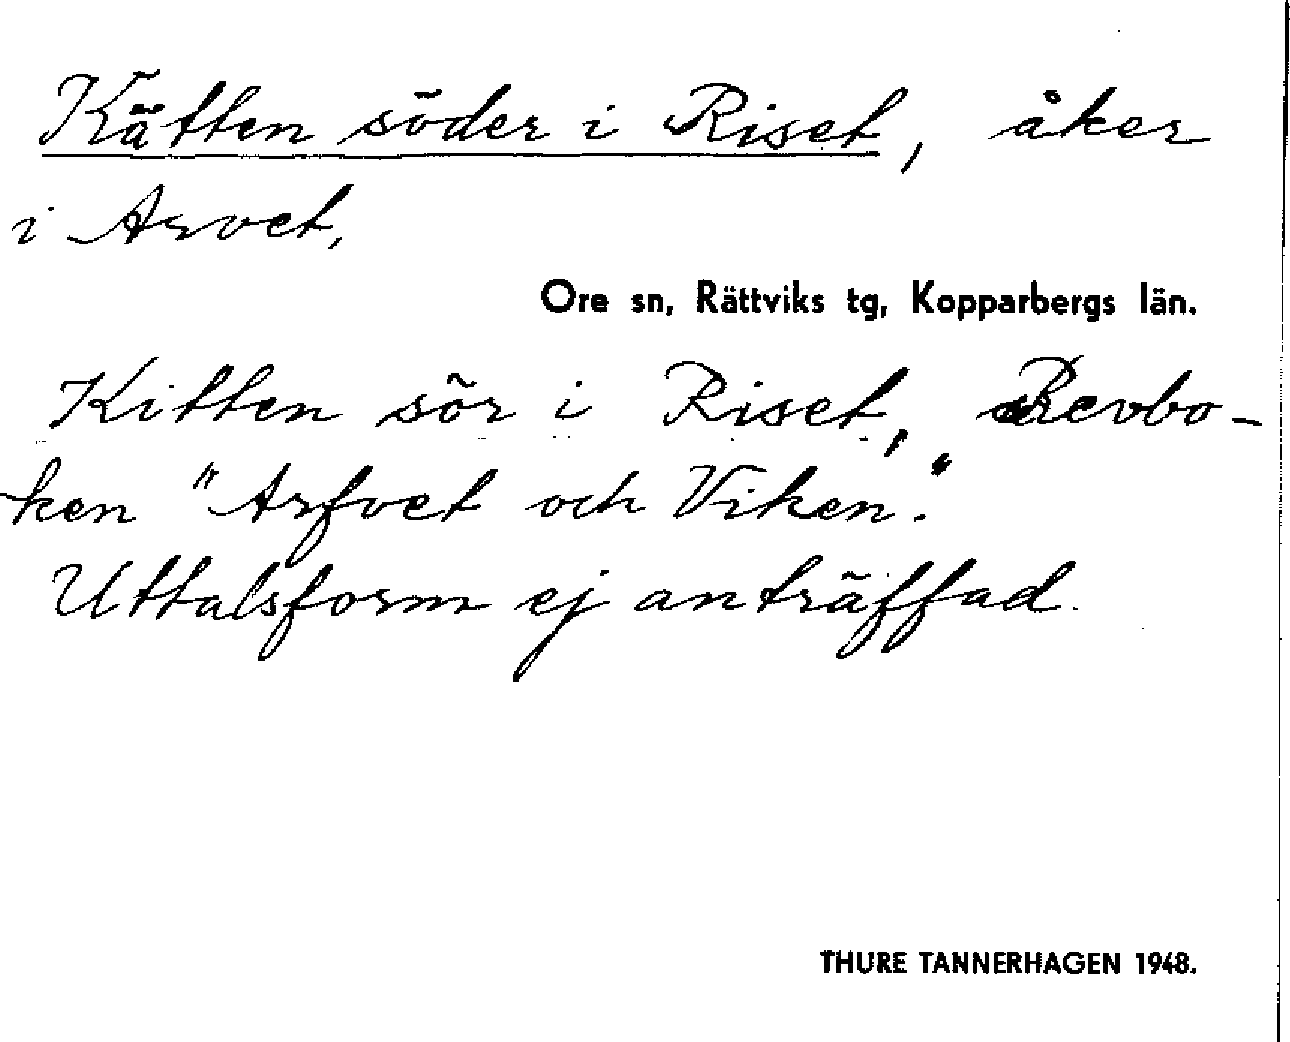 Kätten söder i Riset, åker
i Arvet,
Ore sn, Rättviks tg, Kopparbergs län.
Kitten sör i Riset, Revbo-
ken "Arfvet och Viken".
Uttalsform ej anträffad.
THURE TANNERHAGEN 1948.